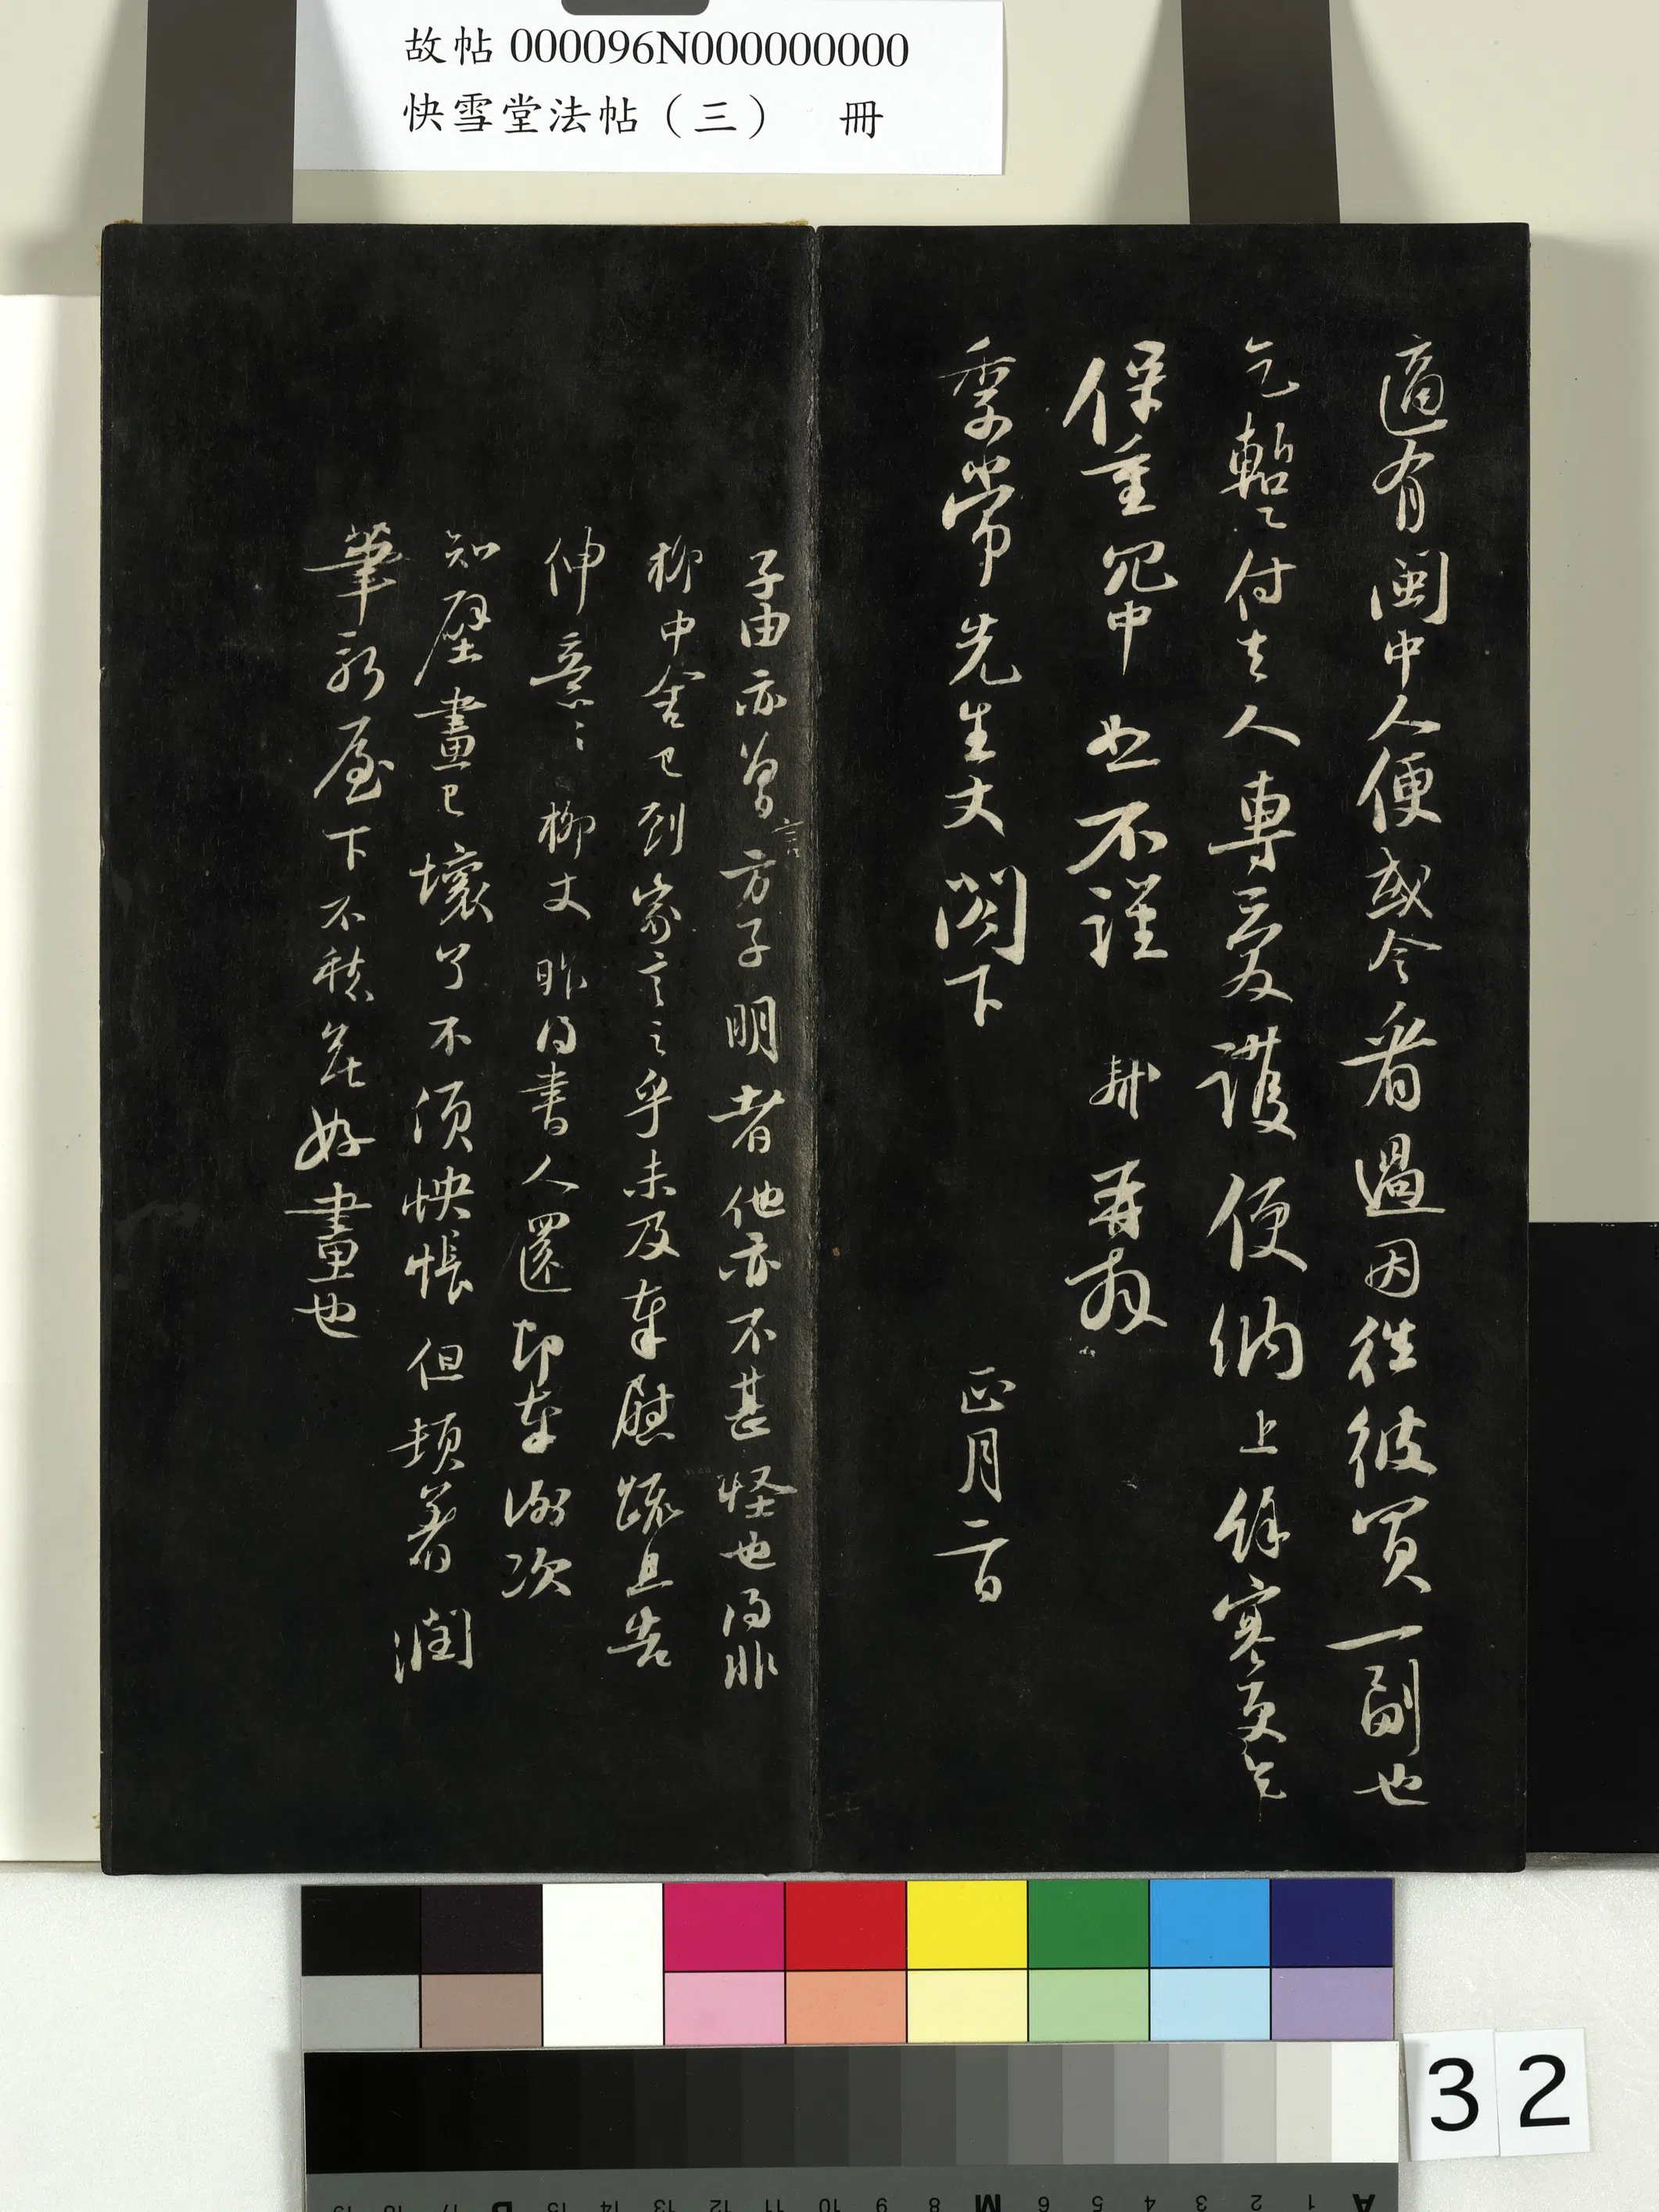 故帖000096N000000000
快雪堂法帖（三） 冊
適有閩中人便或令看過因往彼買一副也
乞蹔蹔付去人專愛護便納上餘寒更乞
保重冗中恕不謹 軾再拜
季常先生丈閤下 正月二日
子由亦曾言方子明者他亦不甚怪也得非
柳中舍已到家言之乎未及奉慰疏且告
伸意伸意柳丈昨得書人還即奉謝次
知壁畫已壞了不須怏悵但頓著潤
筆新屋下不愁無好畫也
32
19 18 17 B 15 14 13 12 11 10 9 8 M 6 5 4 3 2 1 A